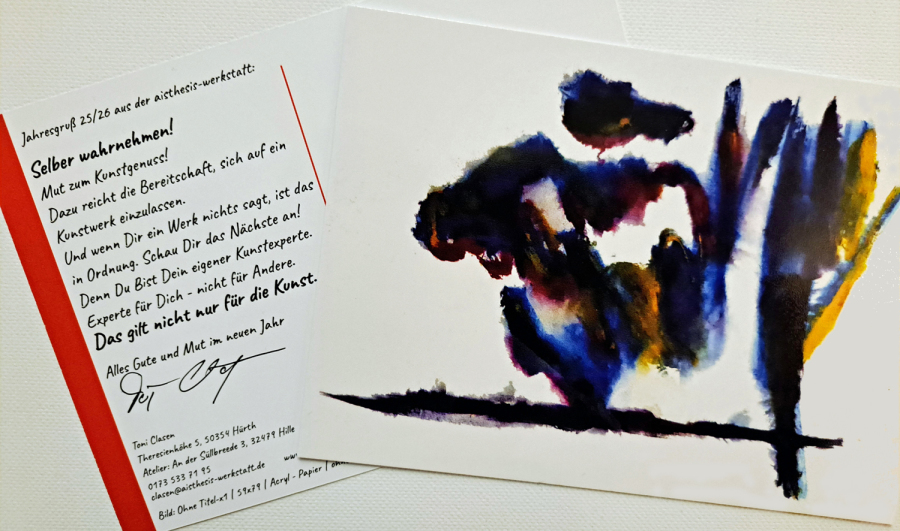 Jahresgruß 25/26 aus der aisthesis-werkstatt:
Selber wahrnehmen!
Mut zum Kunstgenuss!
Dazu reicht die Bereitschaft, sich auf ein
Kunstwerk einzulassen.
Und wenn Dir ein Werk nichts sagt, ist das
in Ordnung. Schau Dir das Nächste an!
Denn Du Bist Dein eigener Kunstexperte.
Experte für Dich - nicht für Andere.
Das gilt nicht nur für die Kunst.
Alles Gute und Mut im neuen Jahr
Toni Clasen
Theresienhöhe 5, 50354 Hürth
Atelier: An der Süllbreede 3, 32479 Hille
0173 533 71 95
clasen@aisthesis-werkstatt.de
Bild: Ohne Titel-x1 | 59x79 | Acryl - Papier |